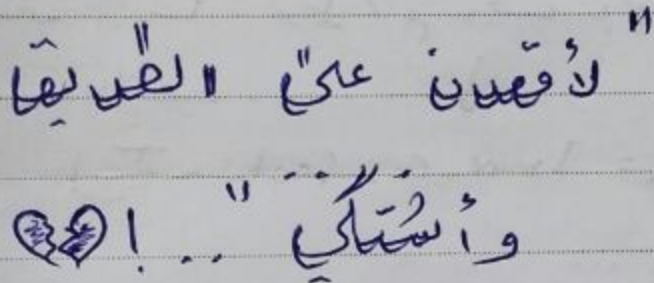 " لأقعدن على الطريق
وأشتكي " .. !💔